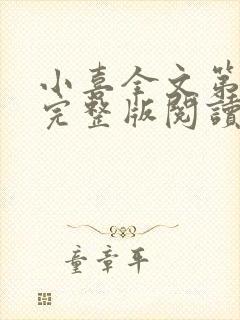 小喜全文第
完整版閱讀
童章平